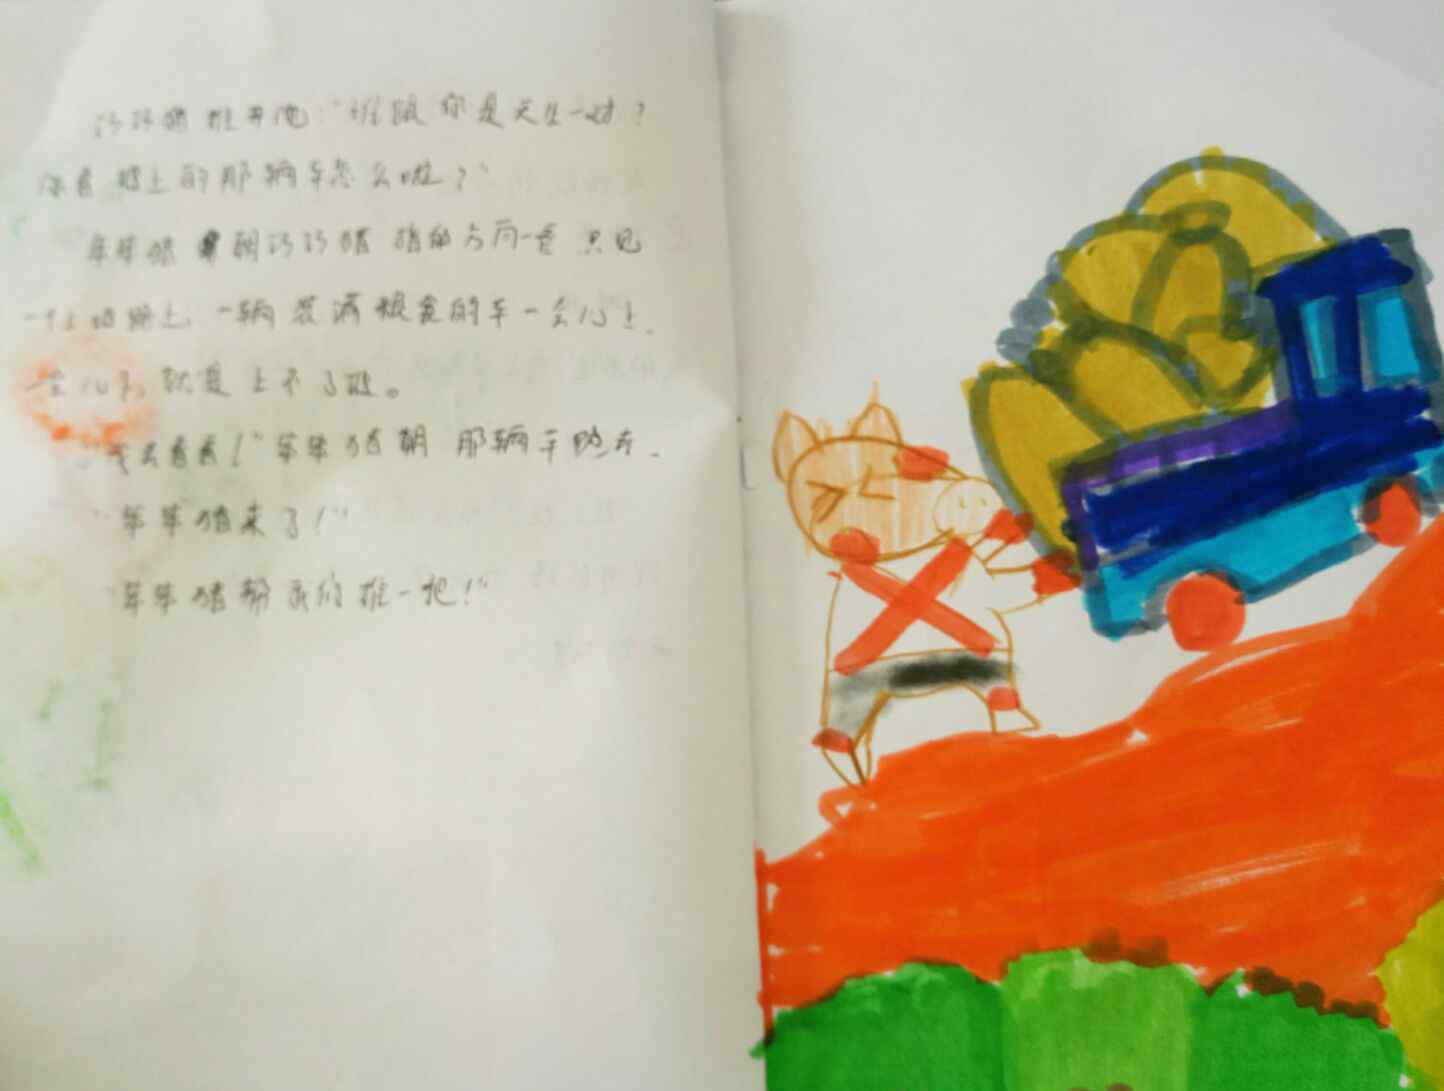 巧巧猪推开他："谁跟你是天生一对？
你看坡上的那辆车怎么啦？"
笨笨猪朝巧巧猪指的方向一看 只见
一个上坡路上，一辆装满粮食的车一会儿上，
一会儿下，就是上不了坡。
"我去看看！"笨笨猪朝那辆车跑去。
"笨笨猪来了！"
"笨笨猪帮我们推一把！"